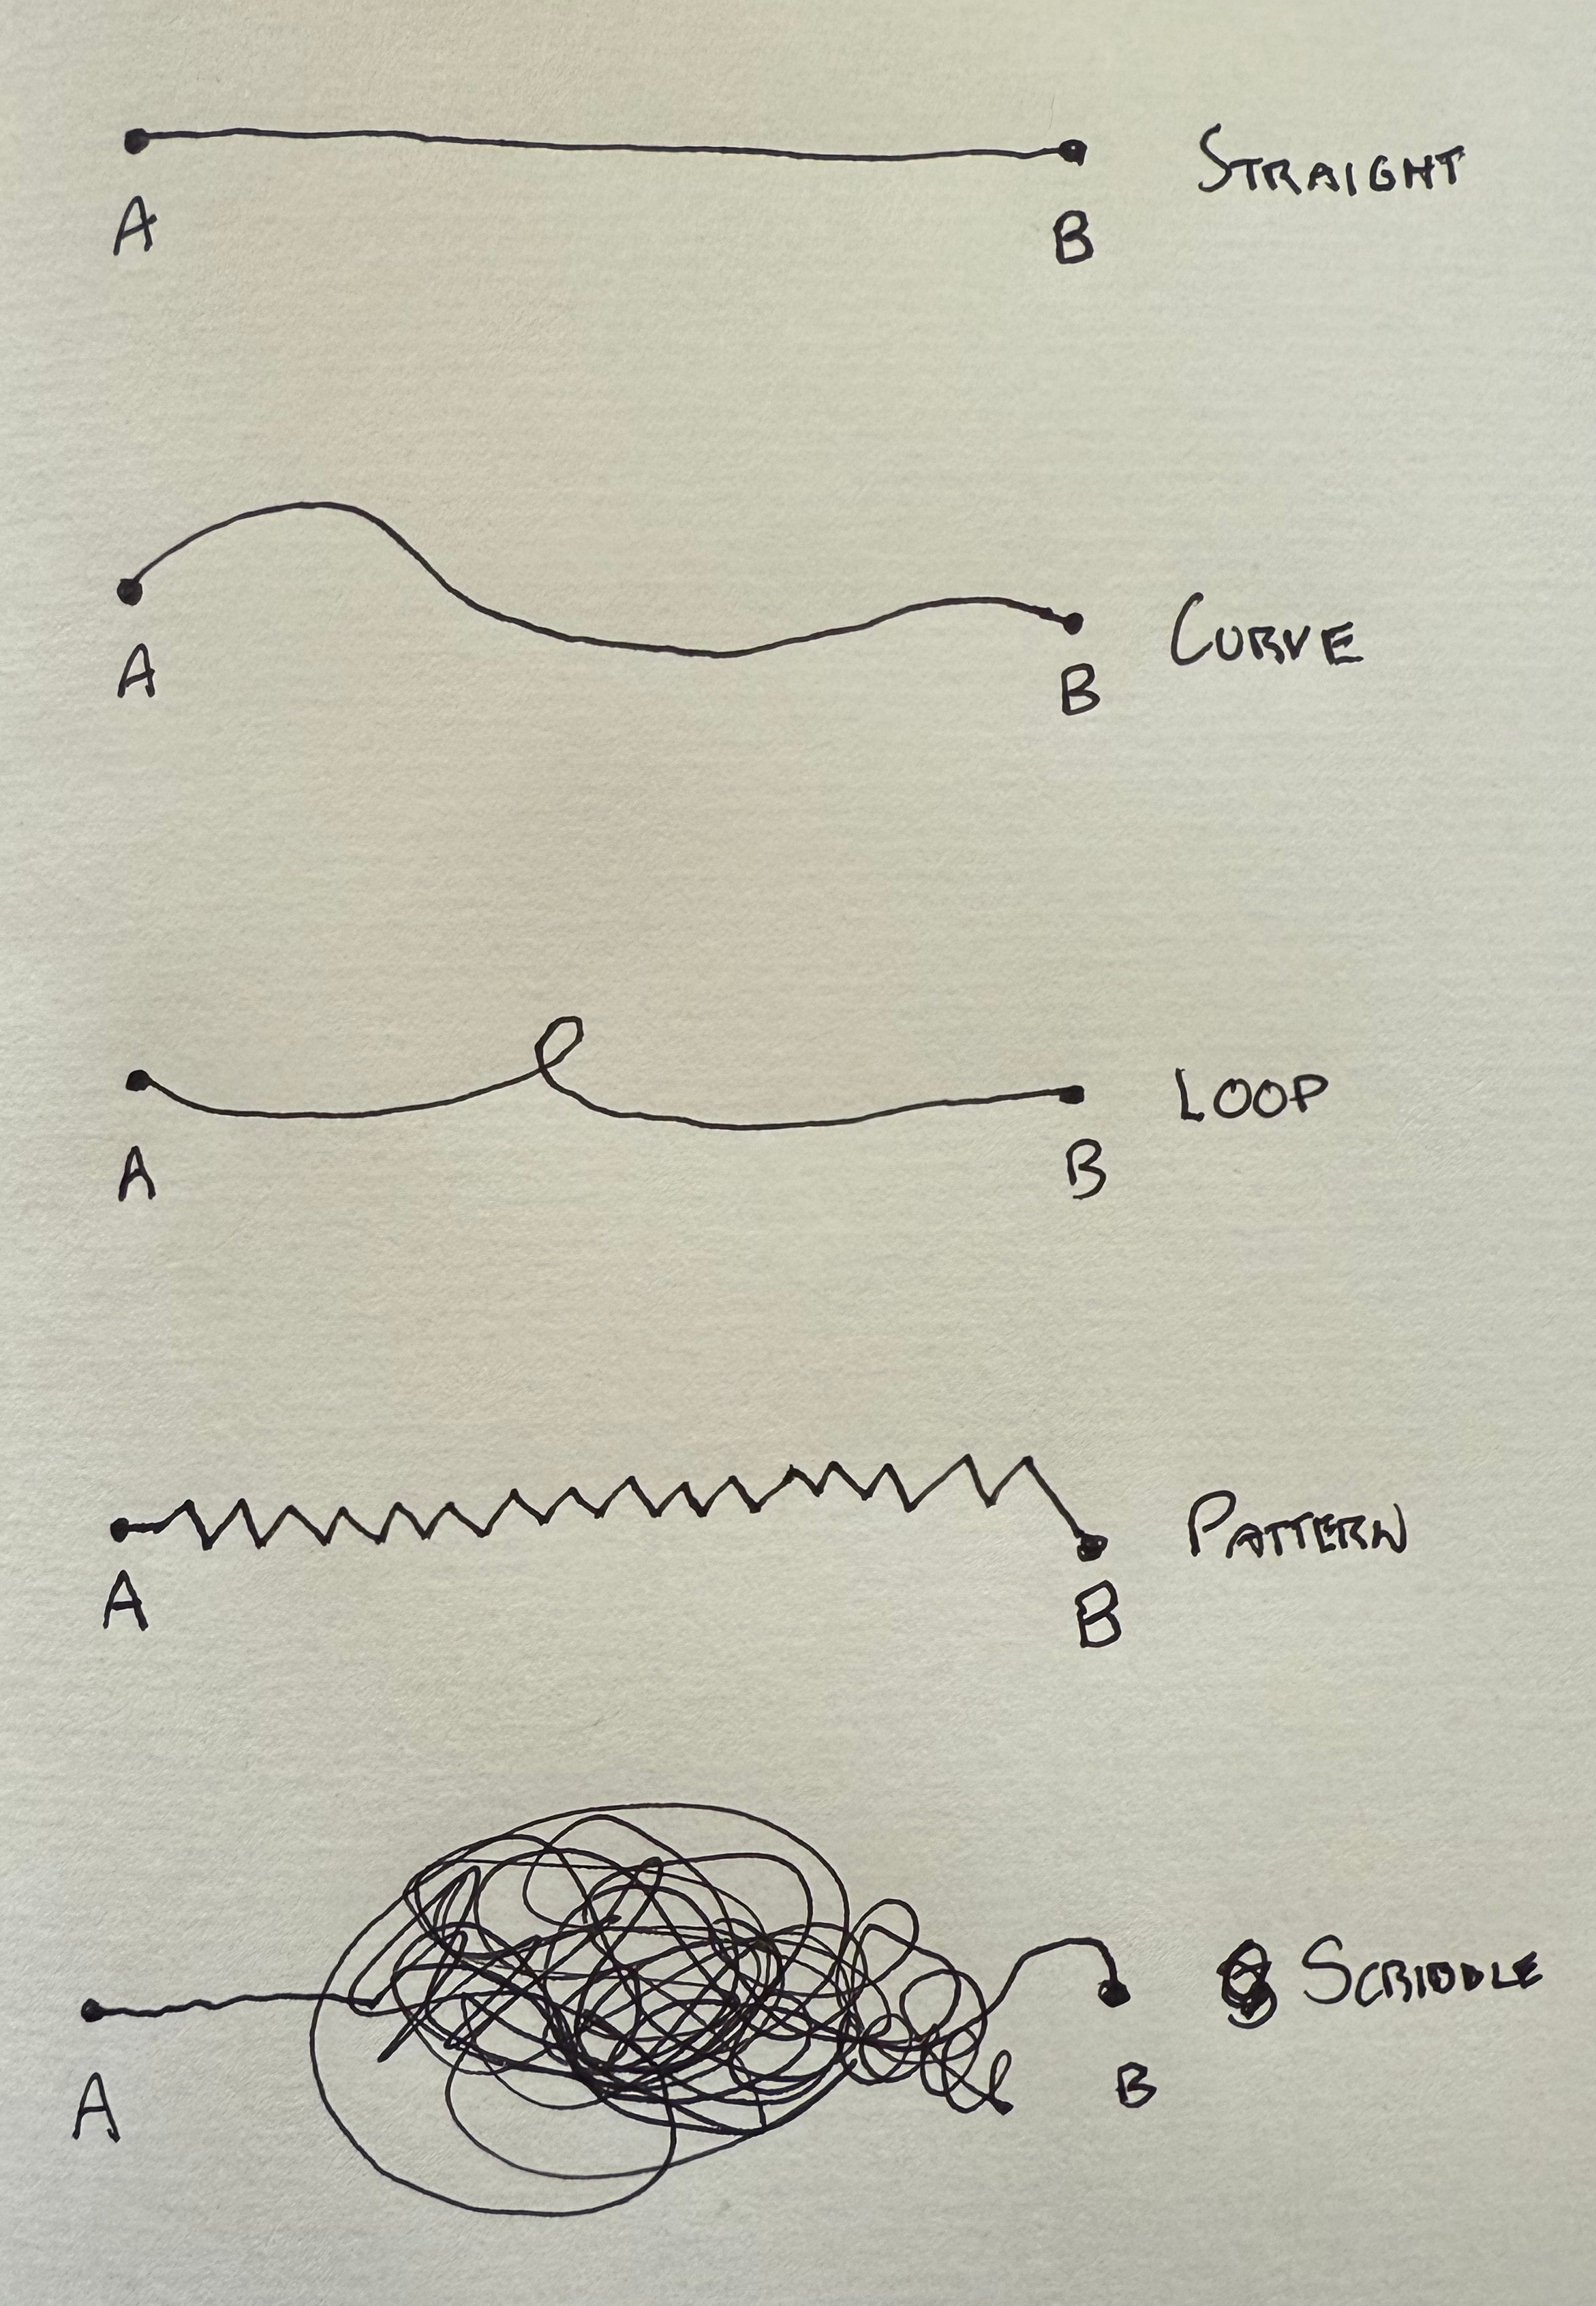 STRAIGHT
A B
CURVE
A B
LOOP
A B
PATTERN
A B
SCRIBBLE
A B